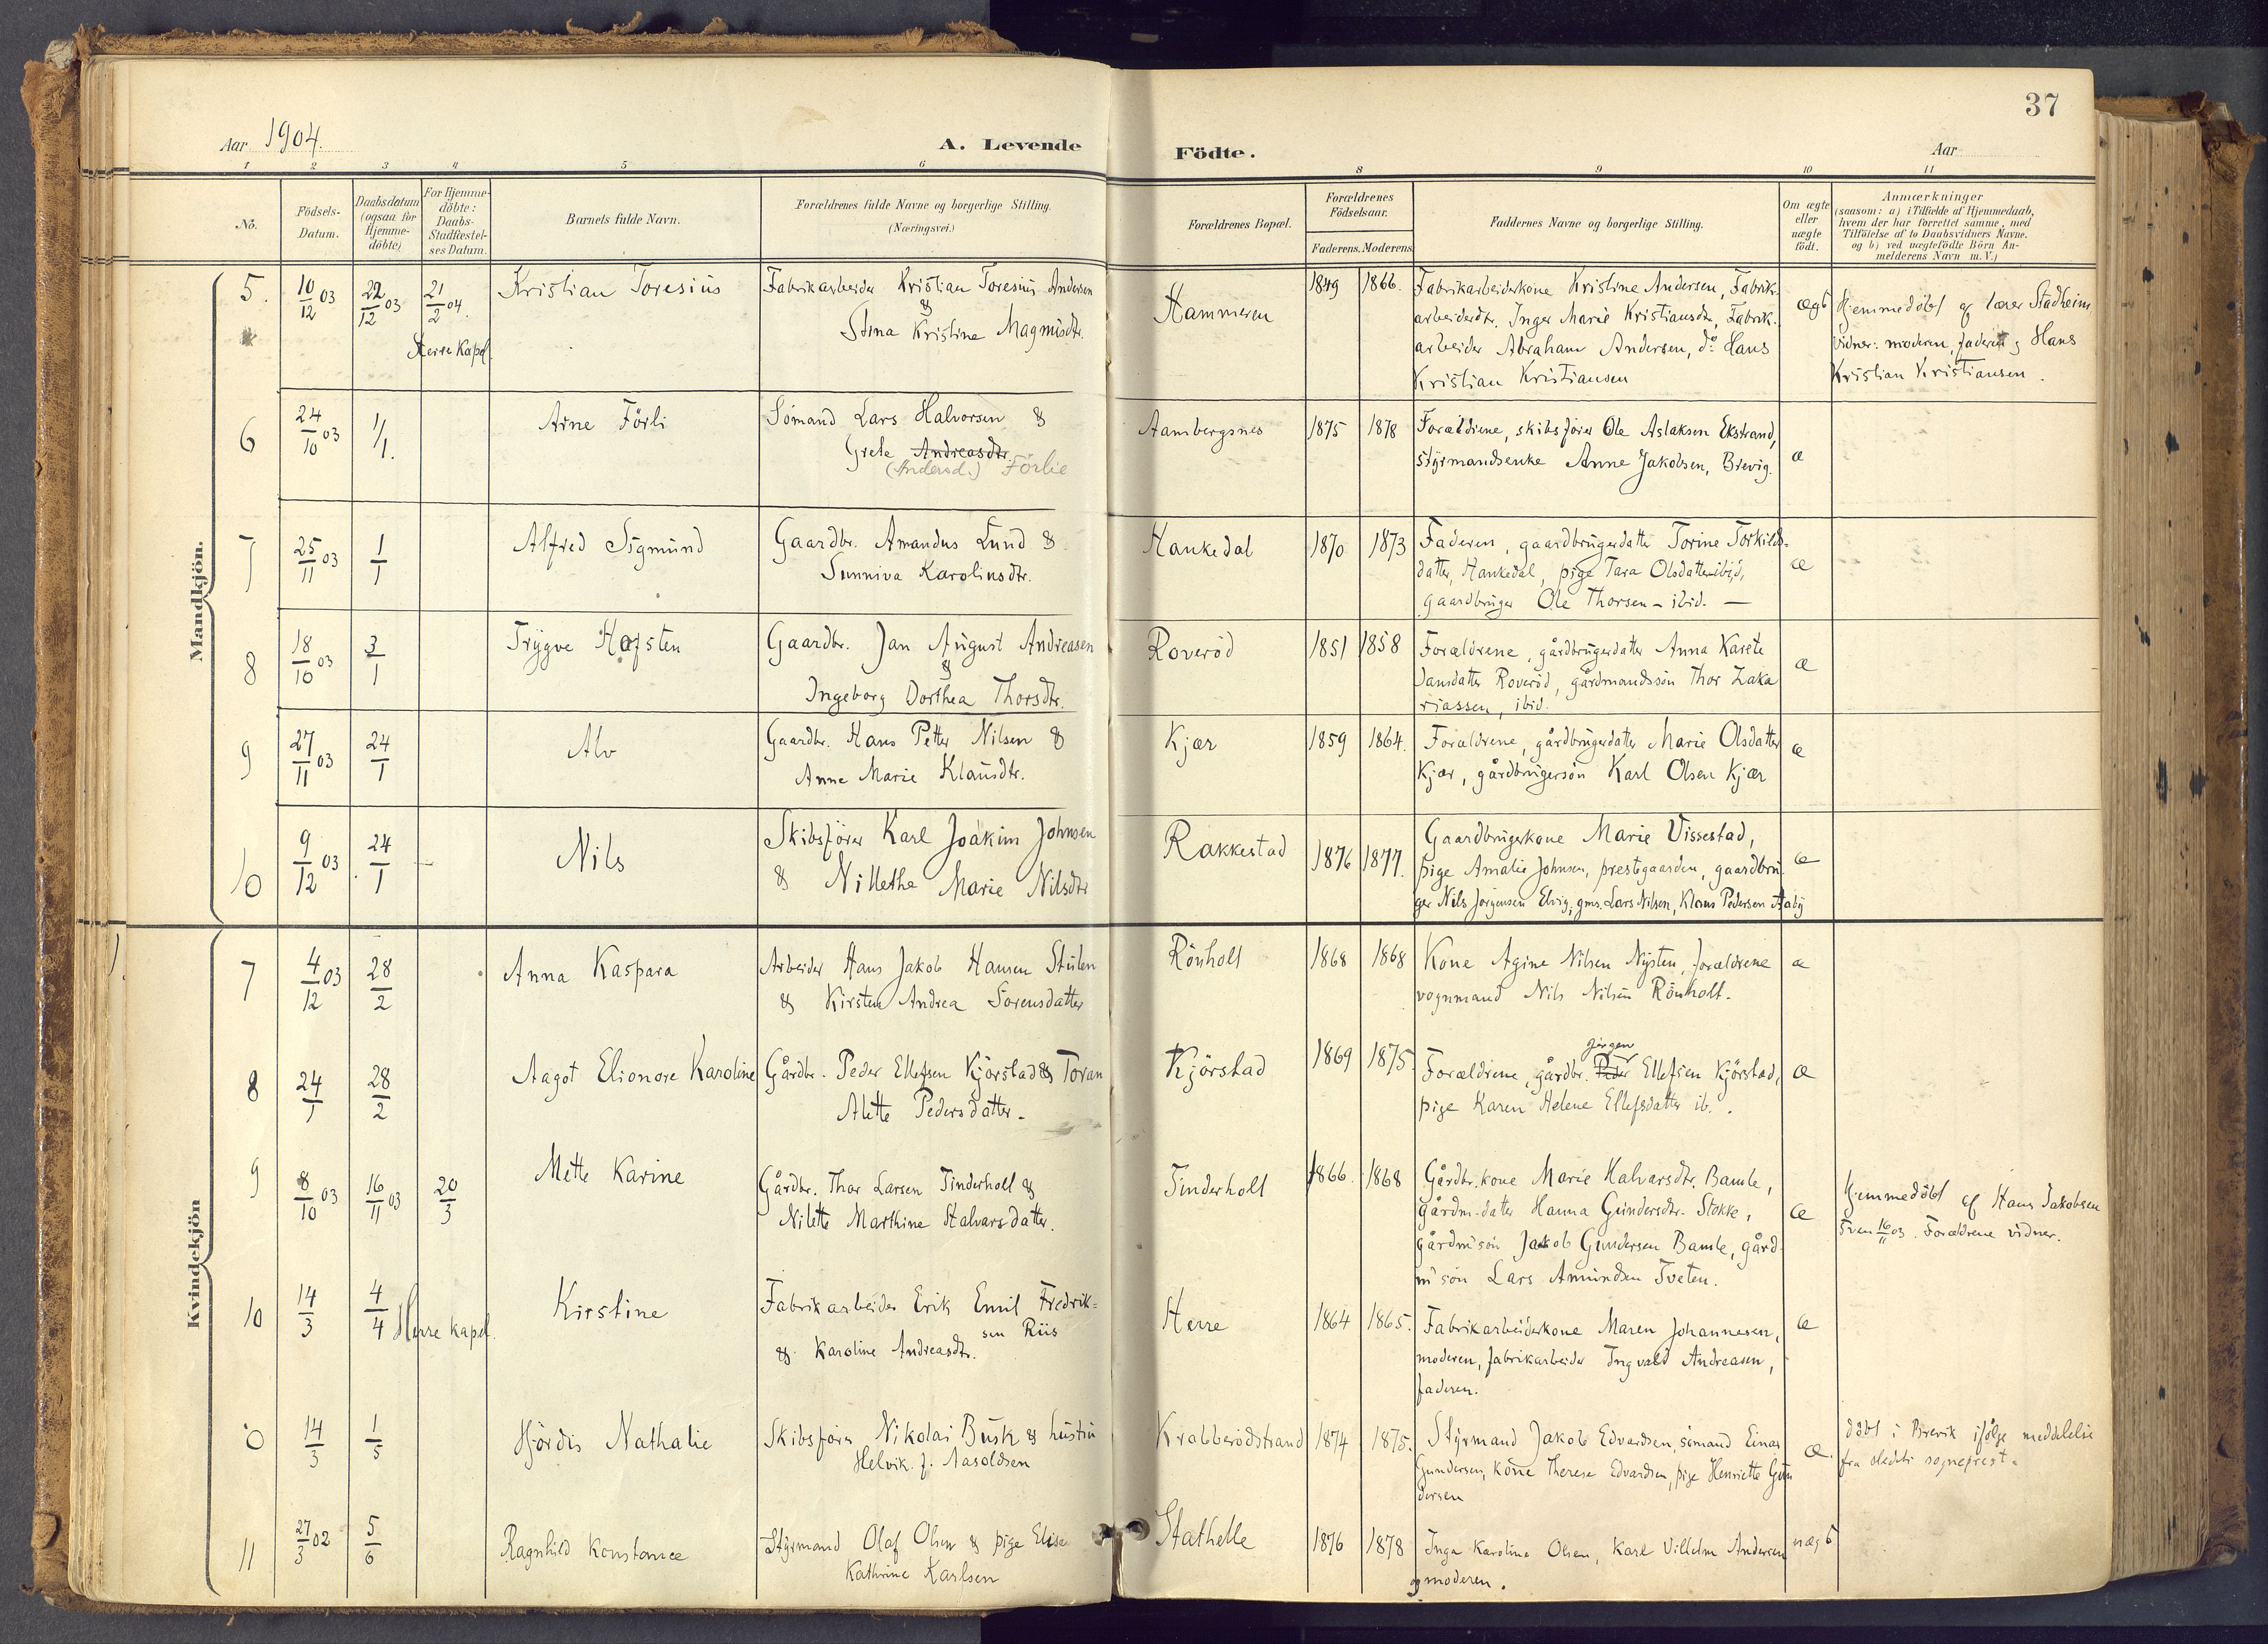 37
Aar 1904.
A. Levende Födte.
Aar
1 2 3 4 5 6 8 9 10 11
No.
Födsels-Datum.
Daabsdatum (ogsaa for Hjemmedöbte)
For Hjemmedöbte: Daabs-Stadfæstelses Datum.
Barnets fulde Navn.
Forældrenes fulde Navne og borgerlige Stilling.
(Næringsvei.)
Forældrenes Bopæl.
Forældrenes Födselsaar.
Faderens. Moderens
Faddernes Navne og borgerlige Stilling.
Om ægte eller uægte födt.
Anmærkninger
(saasom: a) i Tilfælde af Hjemmedaab,
hvem der har forrettet samme, med
Tilföielse af to Daabsvidners Navne.
og b) ved uægtefödte Börn An-
melderens Navn m. V.)
Mandkjön.
5. 10/12 03 22/12 03 21/2 04. Herre Kapel
Kristian Toresius
Fabrikarbeider Kristian Toresius Andersen
&
Stina Kristine Magnusdtr.
Hammeren
1849 1866.
Fabrikarbeiderkone Kristine Andersen, Fabrik-
arbeiderdtr. Inger Marie Kristiansdtr, Fabrik-
arbeider Abraham Andersen, do Hans
Kristian Kristiansen
ægt
Hjemmedöbt af lærer Stadheim
vidner: moderen, faderen og Hans
Kristian Kristiansen.
6 24/10 03 1/1.
Arne Förli
Sömand Lars Halvorsen &
Grete Andreasdtr.
(Andersd.) Förlie
Aambergsnes
1875 1878
Forældrene, skibsförer Ole Aslaksen Ekstrand,
styrmandsenke Anne Jakobsen, Brevig.
æ
7 25/11 03 1/1
Alfred Sigmund
Gaardbr. Amandus Lund &
Sunniva Karolinsdtr.
Hankedal
1870 1873
Faderen, gaardbrugerdatter Torine Torkilds-
datter, Hankedal, pige Tara Olsdatter ibid,
gaardbruger Ole Thorsen - ibid. —
æ
8 18/10 03 3/1
Trygve Hafsten
Gaardbr. Jan August Andreasen
&
Ingeborg Dorthea Thorsdtr.
Roveröd
1851 1858
Forældrene, gårdbrugerdatter Anna Karete
Jansdatter Roveröd, gårdmandssön Thor Zaka
riassen, ibid.
æ
9 27/11 03 24/1
Alv
Gaardbr. Hans Petter Nilsen &
Anne Marie Klausdtr.
Kjær
1859 1864.
Forældrene, gårdbrugerdatter Marie Olsdatter
Kjær, gårdbrugersön Karl Olsen Kjær
æ
10 9/12 03 24/1
Nils
Skibsförer Karl Joakim Johnsen
& Nillethe Marie Nilsdtr
Rakkestad
1876 1877.
Gaardbrugerkone Marie Vissestad,
pige Amalie Johnsen, prestegaarden, gaardbru
ger Nils Jörgensen Elvig, gms. Lars Nilsen, Klaus Pedersen Aaby
æ
Kvindekjön
7 4/12 03 28/2
Anna Kaspara
Arbeider Hans Jakob Hansen Stulen
& Kirsten Andrea Sorensdatter
Rönholt
1868 1868
Kone Agine Nilsen Nysten, forældrene
vognmand Nils Nilsen Rönholt.
æ
8 24/1 28/2
Aagot Elionore Karoline
Gårdbr. Peder Ellefsen Kjörstad & Toran
Alette Pedersdatter -
Kjörstad
1869 1875.
Jörgen
Forældrene, gårdbr. Peder Ellefsen Kjörstad,
pige Karen Helene Ellefsdatter ib.
æ
9 8/10 03 16/11 03 20/3
Mette Karine
Gårdbr. Thor Larsen Tinderholt &
Nilette Marthine Halvarsdatter.
Tinderholt
1866. 1868
Gårdbr. kone Marie Halvarsdtr. Bamle,
gårdm-datter Hanna Gundersdtr. Stokke,
gårdm'sön Jakob Gundersen Bamle, gård
m'sön Lars Amundsen Tveten.
æ
Hjemmedöbt af Hans Jakobsen
16/11 03. Forældrene vidner.
10 14/3 4/4 Herre kapel.
Kirstine
Fabrikarbeider Erik Emil Fredrik=
sen Riis
& Karoline Andreasdtr.
Herre
1864 1865.
Fabrikarbeiderkone Maren Johannesen,
moderen, fabrikarbeider Ingvald Andreasen,
faderen.
æ
14/3 1/5
Hjördis Nathalie
Skibsförer Nikolai Busk & hustru
Helvik. f. Aasoldsen
Krabberödstrand
1874 1875.
Styrmand Jakob Edvardsen, sömand Einar
Gundersen, kone Therese Edvardsen, pige Henriette Gun
dersen
æ.
döbt i Brevik ifölge meddelelse
fra stedets sogneprest.
11 27/3 02 5/6
Ragnhild Konstance
Styrmand Olaf Olsen & pige Elise
Kathrine Karlsen
Stathelle
1876 1878
Inga Karoline Olsen, Karl Vilhelm Andersen
og moderen.
uægt